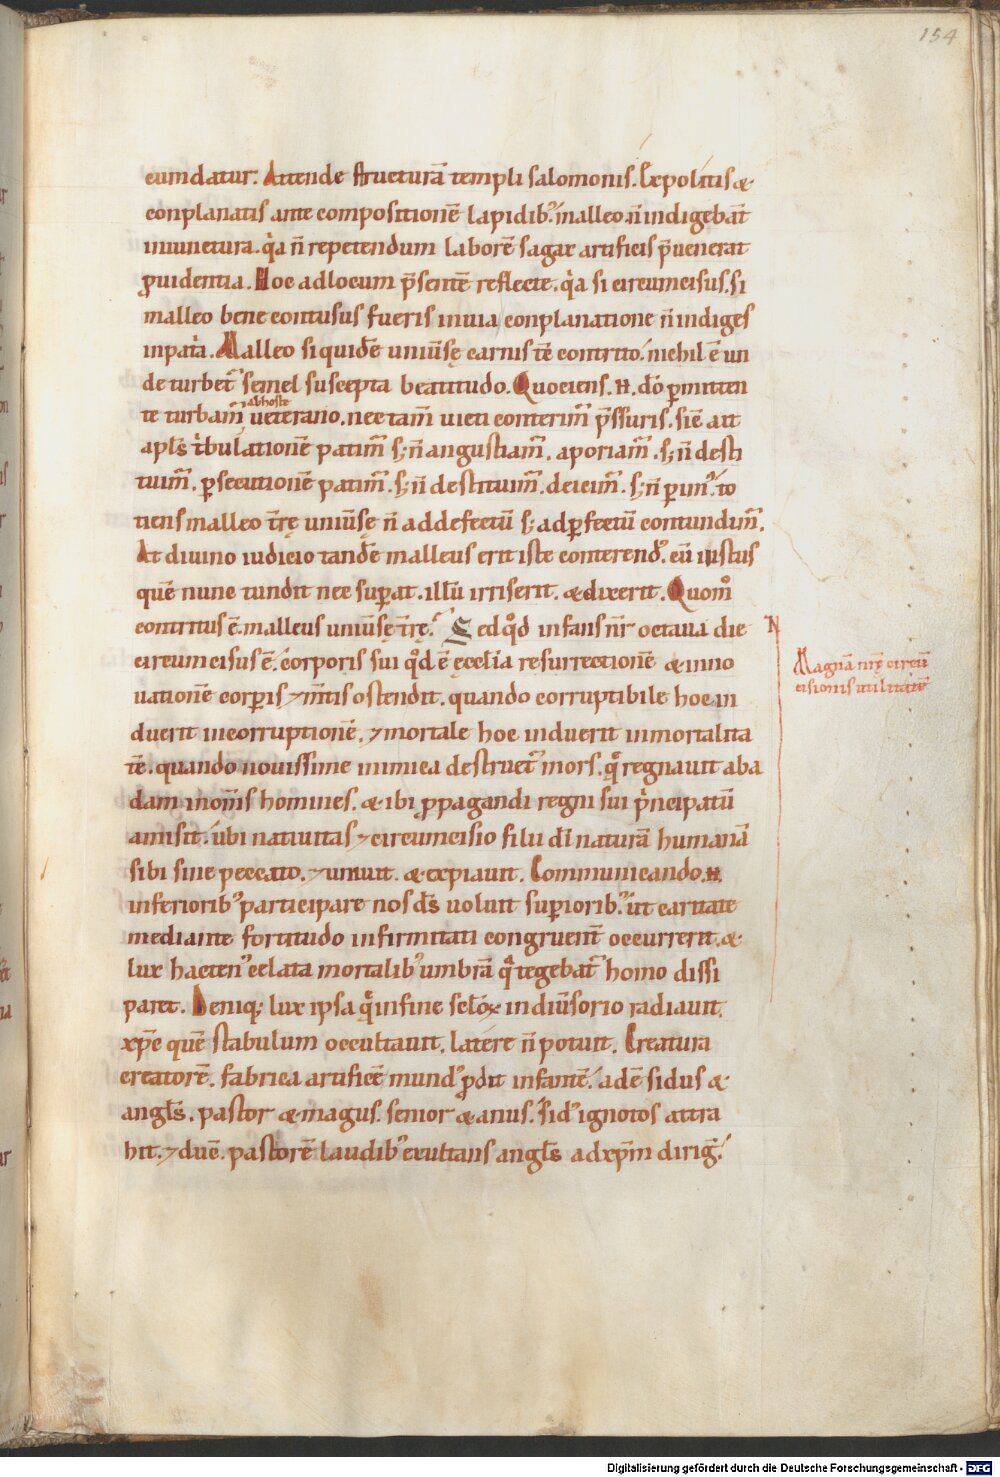 154
cumdatur. Attende structurā templi salomonis. Expolitis &
conplanatis ante compositionē lapidib; malleo n̄ indigebat̄
iniunctura. q̇a n̄ repetendum laborē sagax artificis p̄uenerat
ꝓuidentia. Hoc ad locum p̄sentē reflecte. q̇a si circumcisus. si
malleo bene contusus fueris in uia conplanatione n̄ indiges
in pat̓a. Malleo siquidē uniūsę carnis tē contrito. nichil ē un
de turbet᷑ semel suscepta beatitudo. Quociens .H. dō ꝑmitten
te turbam̄ ab hoste ueterano. nec tam̄ uicti conterim̄ p̄ssuris. sic̄ ait
apl̄s t̓bulationē patim̄ s; n̄ angustiam̄. aporiam̄. s; n̄ desti
tuim̄. ꝑsecutionē patim̄. s; n̄ destituim̄. deicim̄. s; n̄ ꝑim᷒. to
tiens malleo t̄rę uniūsę n̄ ad defectū s; ad ꝑfectū contundim̄.
At diuino iudicio tandē malleus erit iste conterend᷒. cū iustus
quē nunc tundit nec suꝑat. illū irriserit. & dixerit. Quom̊
contritus ē. malleus uniūsę t̄rę. Sed qđ infans n̄r octaua die
circumcisus ē. corporis sui qđ ē ęccl̄ia resurrectionē & inno
uationē corꝑis ⁊ m̄tis ostendit. quando corruptibile hoc in
duerit incorruptionē. ⁊ mortale hoc induerit inmortalita
tē. quando nouissime inimica destruet᷑ mors. q̄ regnauit ab a
dam in om̄s homines. & ibi ꝓpagandi regni sui p̓ncipatū
amisit. ubi natiuitas ⁊ circumcisio filii dī naturā humanā
sibi sine peccato. ⁊ uniuit. & expiauit. Communicando .H.
inferiorib᷒ participare nos d̄s uoluit superiorib᷒. ut caritate
mediante fortitudo infirmitati congruent̄ occurrerit. &
lux hacten᷒ celata mortalib᷒ umbrā q̄ tegebat᷑ homo dissi
paret. Deniq; lux ipsa q̄ in fine scl̄oꝝ in diūsorio radiauit.
xp̄e quē stabulum occultauit. latere n̄ potuit. Creatura
creatorē. fabrica artificē mund᷒ ꝓdit infantē. adē sidus &
angl̄s. pastor & magus. senior & anus. sid᷒ ignotos attra
hit. ⁊ duē. pastorē laudib᷒ exultans angl̄s ad xp̄m dirig̓.
N
Magnā nr̄ę circū
cisionis utilitatē
Digitalisierung gefördert durch die Deutsche Forschungsgemeinschaft - DFG